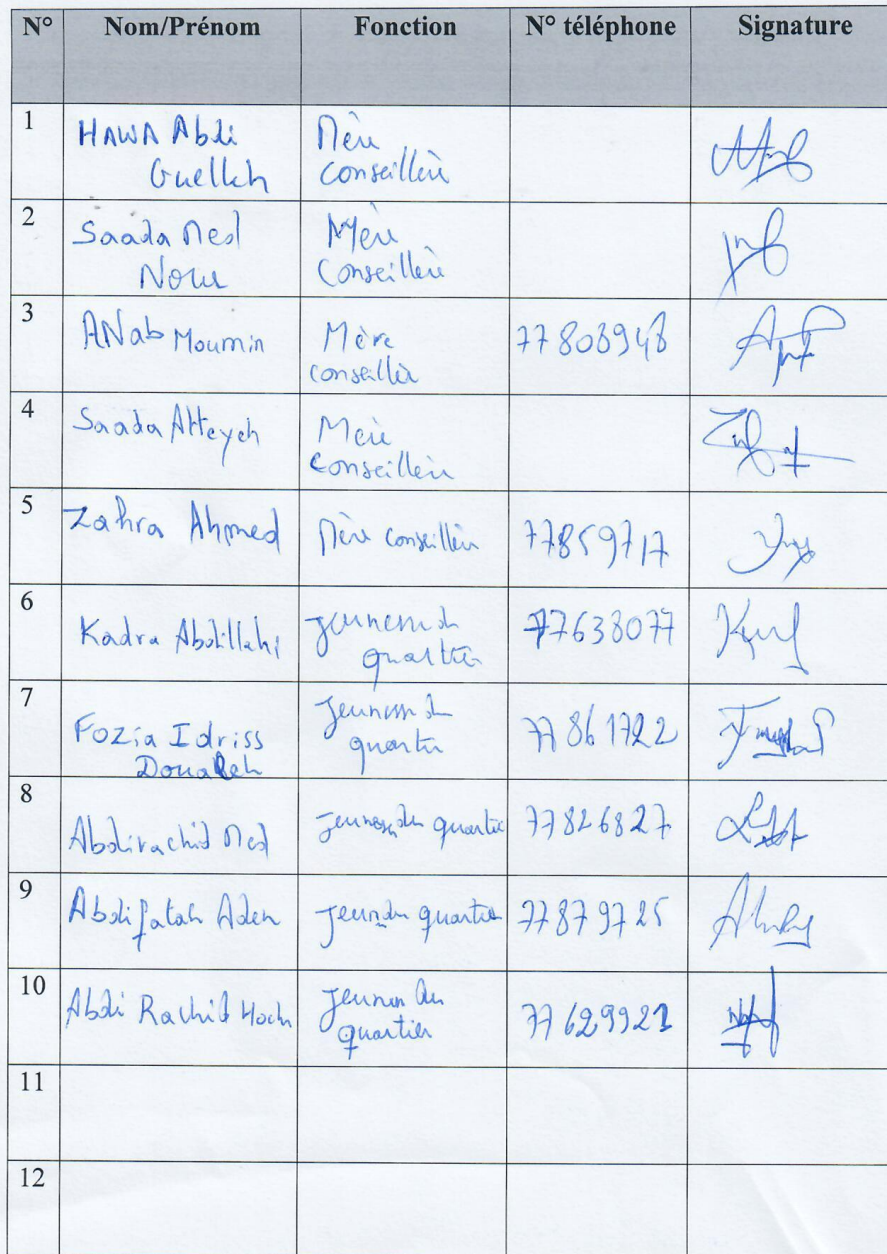 N° Nom/Prénom Fonction N° téléphone Signature
1 HAWA Abdi Guelleh Mère conseillère
2 Saada Med Nour Mère Conseillère
3 ANab Moumin Mère conseillèr 77803948
4 Saada Atteyeh Mère Conseillère
5 Zahra Ahmed Mère conseillère 77859717
6 Kadra Abdillahi jeunesse du quartier 77638077
7 Fozia Idriss Doualeh Jeunesse du quartier 77861722
8 Abdirachid Med jeunesse du quartier 77826827
9 Abdifatah Aden jeune du quartier 77879725
10 Abdi Rachid Jeunesse du quartier 77629921
11
12